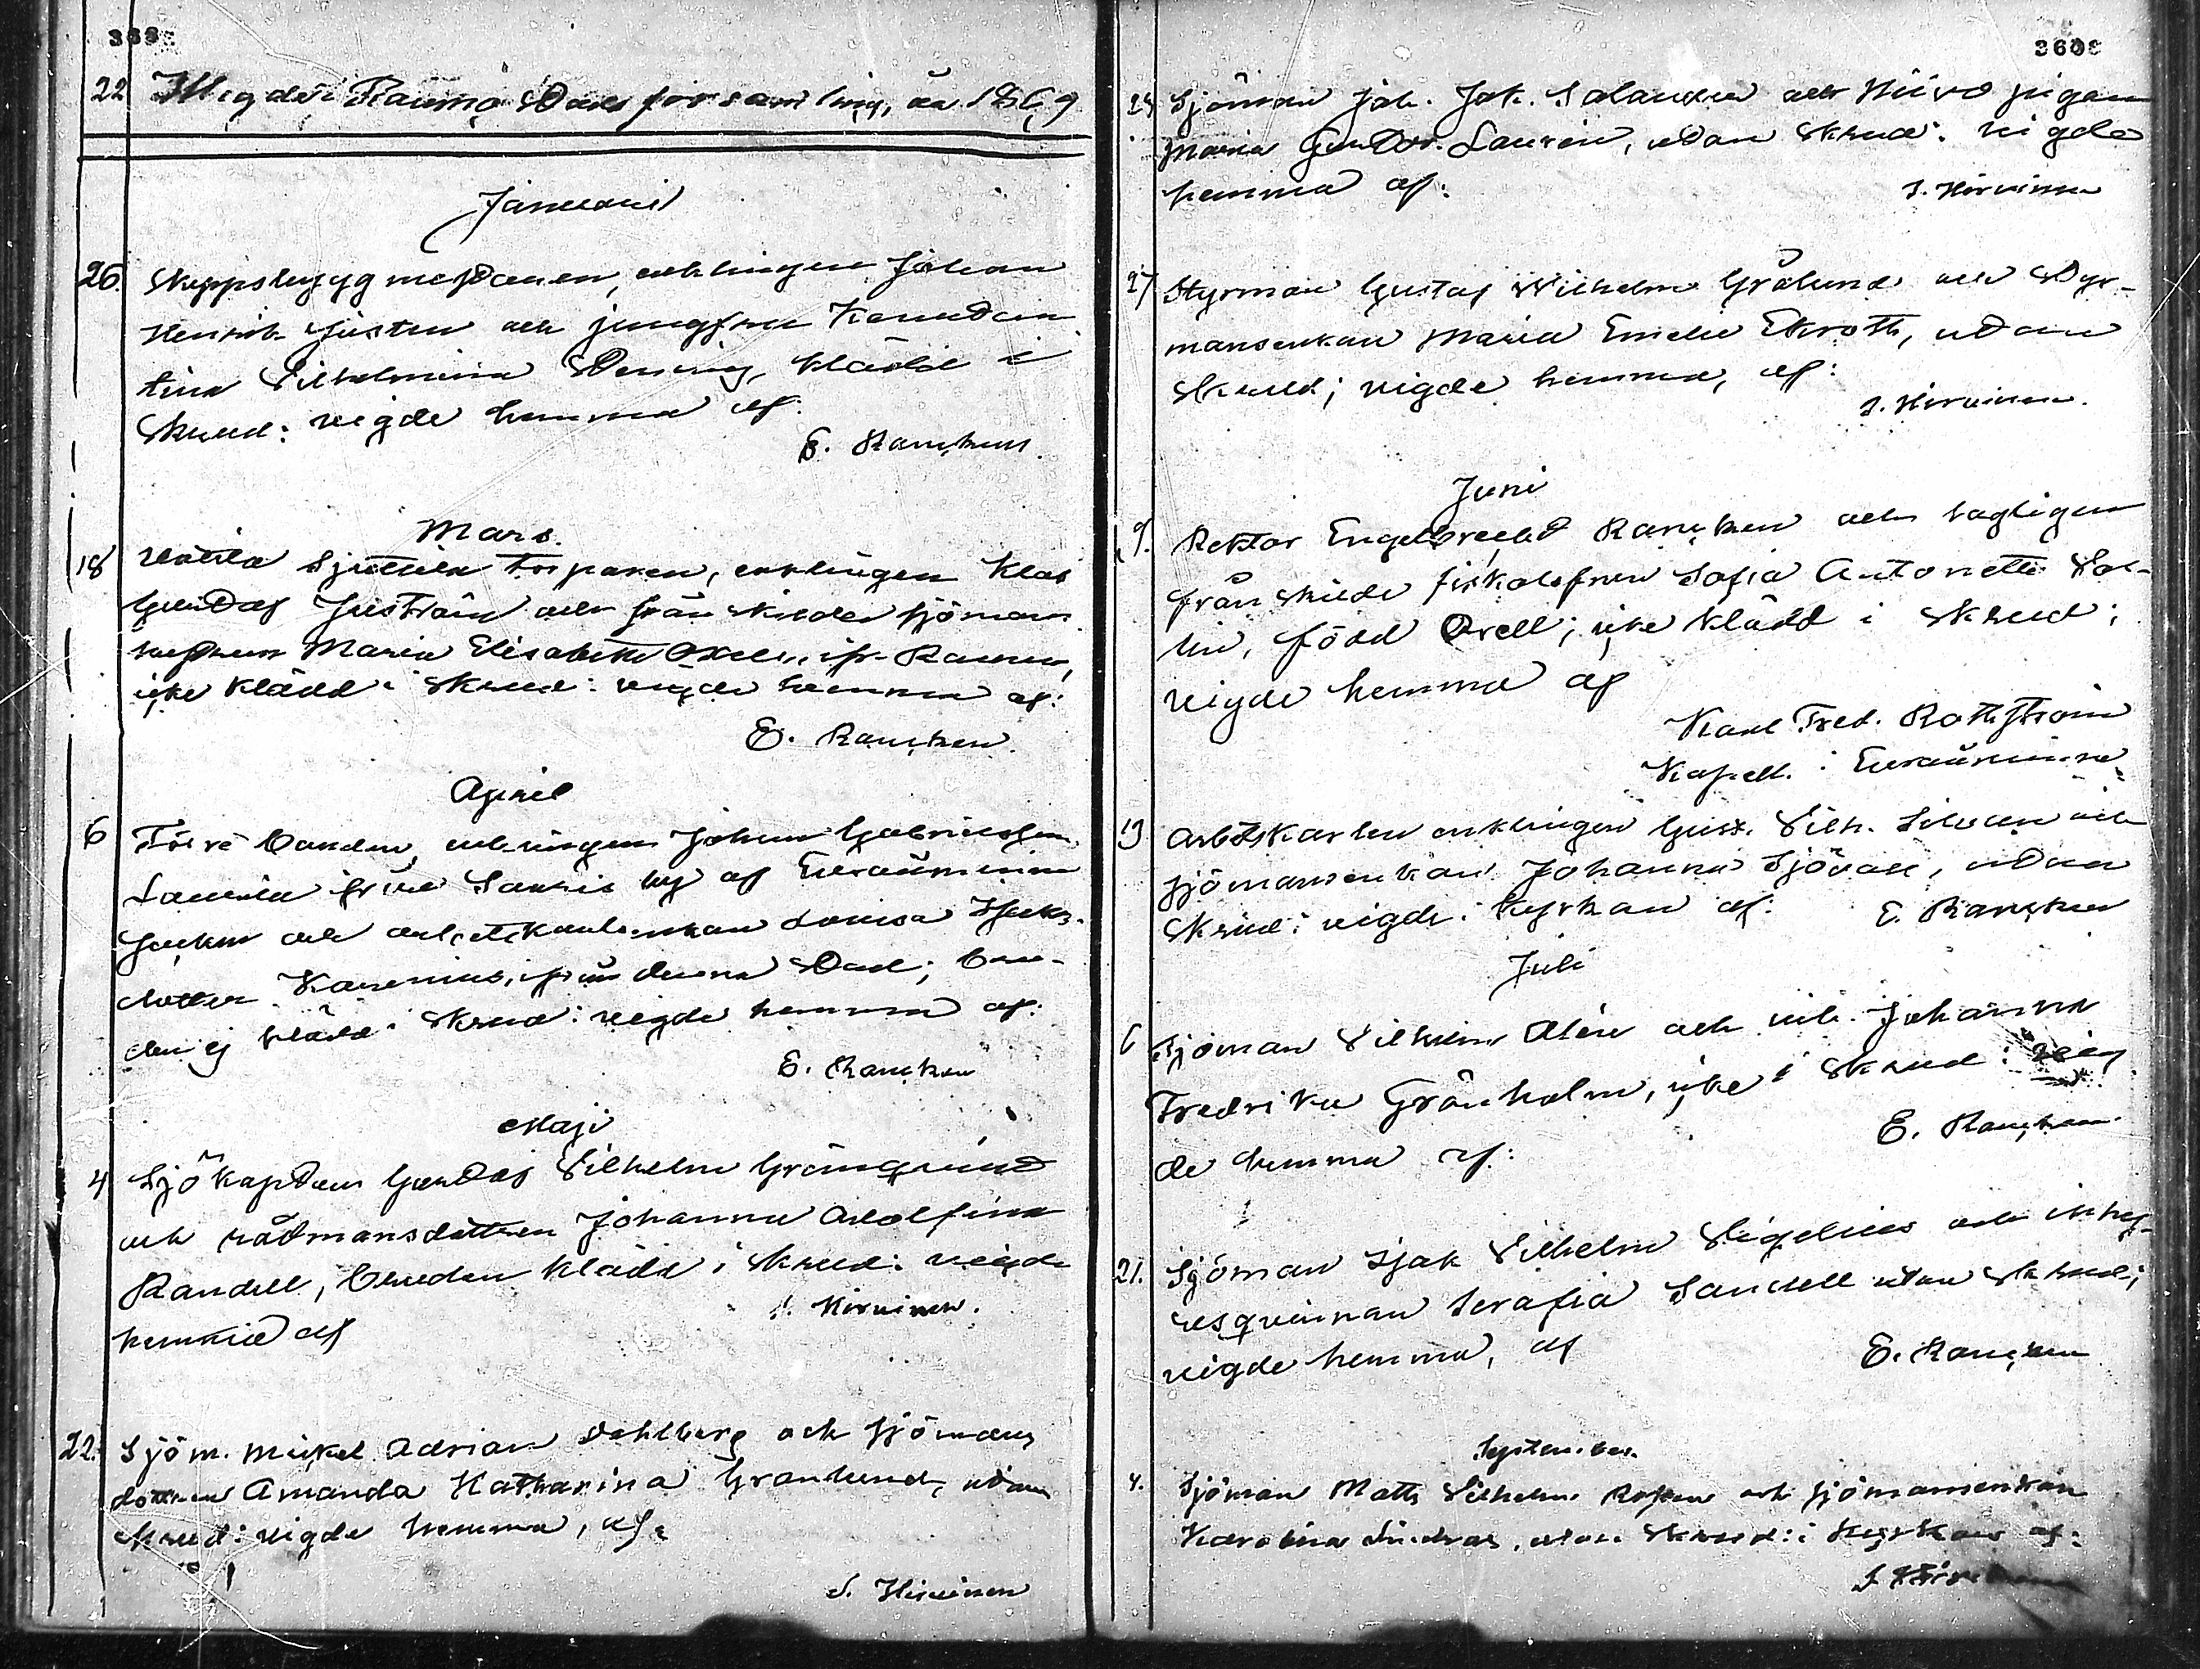 22 Wigde i Raumo Stads församling, år 1869
Januari
26. Skeppsbyggmästaren, enklingen Johan
Henrik Justen och jungfru Konstan
tina Vilhelmina Wening, klädd i
Skrud: vigde hemma af:
E. Rancken.
Mars.
18 torparen, enklingen Klas
Gustaf Juström och från skilda sjömans
hustrun Maria Elisabeth från Raumo,
icke klädd i Skrud: vigde hemma af:
E. Rancken.
April
6 bonden, enklingen Johan Gabrielsson
från by af Euraåminne
Socken och arbetskarlsenkan Lovisa Isaks-
dotter Karenius, från denna Stad; bru-
den ej klädd i Skrud: vigde hemma af:
E. Rancken
Maji
4 Sjökapten Gustaf Vilhelm Grönqvist
och rådmansdottren Johanna Adolfina
Randell, bruden klädd i Skrud: vigde
hemma af
J. Hirvinen.
22. Sjöm. Mickel Adrian Dahlberg och sjömans
dottren Amanda Katharina Granlund, utan
Skrud: vigde hemma, af:
J. Hirvinen
3608
Sjöman Joh. Jak. Salander och pigan
Maria Gustava Laurén, utan Skrud: vigde
hemma af:
J. Hirvinen
27 Styrman Gustaf Wilhelm Grålund och Styr-
mansenkan Maria Emelie Ekroth, utan
Skrud; vigde hemma, af:
J. Hirvinen.
Juni
9. Rektor Engelbrecht Rancken och lagligen
från skilde fiskalsfrun Sofia Antonette
född Orell; icke klädd i Skrud;
vigde hemma af
Karl Fred. Rothström
Kapell. i Euraåminne
13 Arbetskarlen enklingen Gust. Vilh. och
sjömansenkan Johanna Sjövall, utan
Skrud: vigde i kyrkan af:
E. Rancken
Juli
6 Sjöman Vilhelm Alén och Johanna
Fredrika Grönholm, icke i Skrud: vig
de hemma af:
E. Rancken
21. Sjöman Isak Vilhelm Vigelius och inhy-
sesqvinnan Serafia Sandell utan Skrud;
vigde hemma, af
E. Rancken
September.
4. Sjöman Matts Vilhelm och sjömansenkan
Karolina utan Skrud: i Kyrkan af:
J. Hirvinen